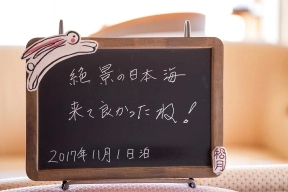 絶景の日本海
来て良かったね!
2017年11月1日泊
松月